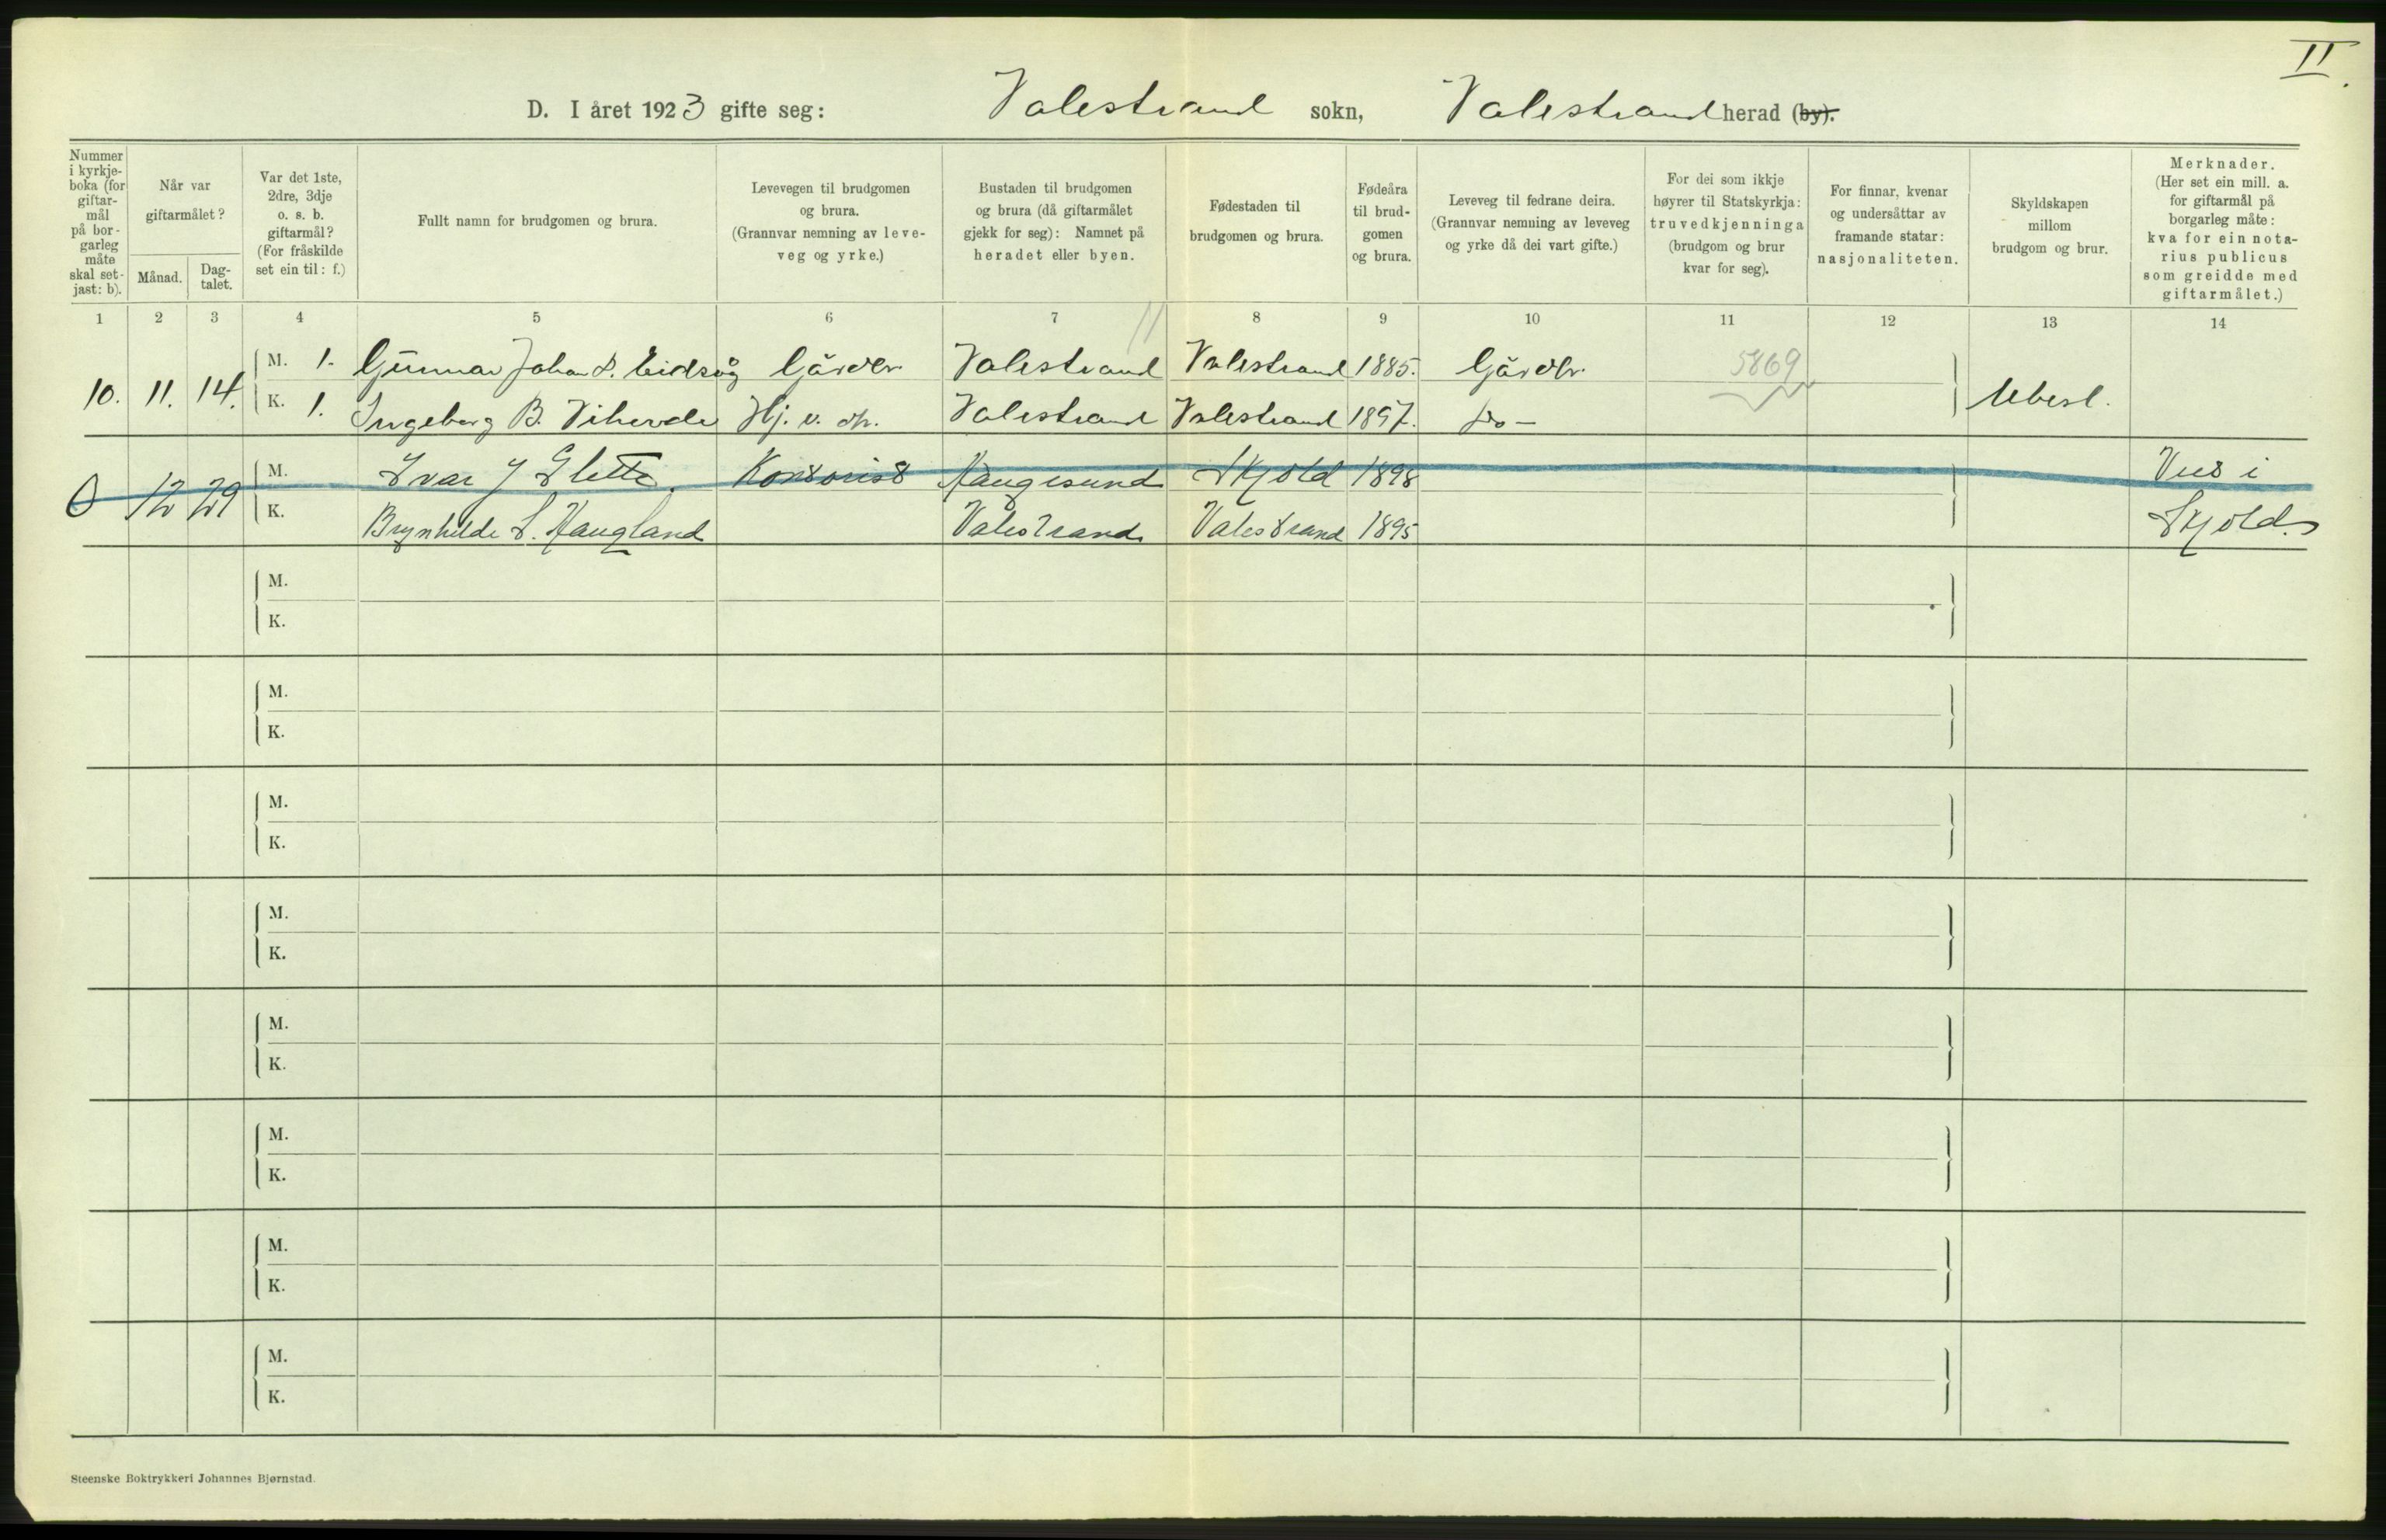 II.
D. I året 1923 gifte seg: Valestrand sokn, Valestrand herad (by).
Nummer i kyrkje-boka (for giftar-mål på bor-garleg måte skal set-jast: b).
Når var giftarmålet?
Månad.
Dag-talet.
Var det 1ste, 2dre, 3dje o. s. b. giftarmål? (For fråskilde set ein til: f.)
Fullt namn for brudgomen og brura.
Levevegen til brudgomen og brura. (Grannvar nemning av leve-veg og yrke.)
Bustaden til brudgomen og brura (då giftarmålet gjekk for seg): Namnet på heradet eller byen.
Fødestaden til brudgomen og brura.
Fødeåra til brud-gomen og brura.
Leveveg til fedrane deira. (Grannvar nemning av leveveg og yrke då dei vart gifte.)
For dei som ikkje høyrer til Statskyrkja: truvedkjenninga (brudgom og brur kvar for seg).
For finnar, kvenar og undersåttar av framande statar: nasjonaliteten.
Skyldskapen millom brudgom og brur.
Merknader. (Her set ein mill. a. for giftarmål på borgarleg måte: kva for ein nota-rius publicus som greidde med giftarmålet.)
1 2 3 4 5 6 7 8 9 10 11 12 13 14
10. 11. 14. M. 1. Gunnar Johan S. Eidsåg Gårdbr Valestrand Valestrand 1885. Gårdbr. 5869
K. 1. Ingeborg B. Vihovde Hj. v. Valestrand Valestrand 1897. Do — Ubesl.
0 12 29 M. Ivar J Slette. Kontorist Haugesund Skjold 1898 Viet i
K. Brynhilde S. Haugland Valestrand. Valestrand 1895 Skjold.
M.
K.
M.
K.
M.
K.
M.
K.
M.
K.
M.
K.
M.
K.
M.
K.
Steenske Boktrykkeri Johannes Bjørnstad.